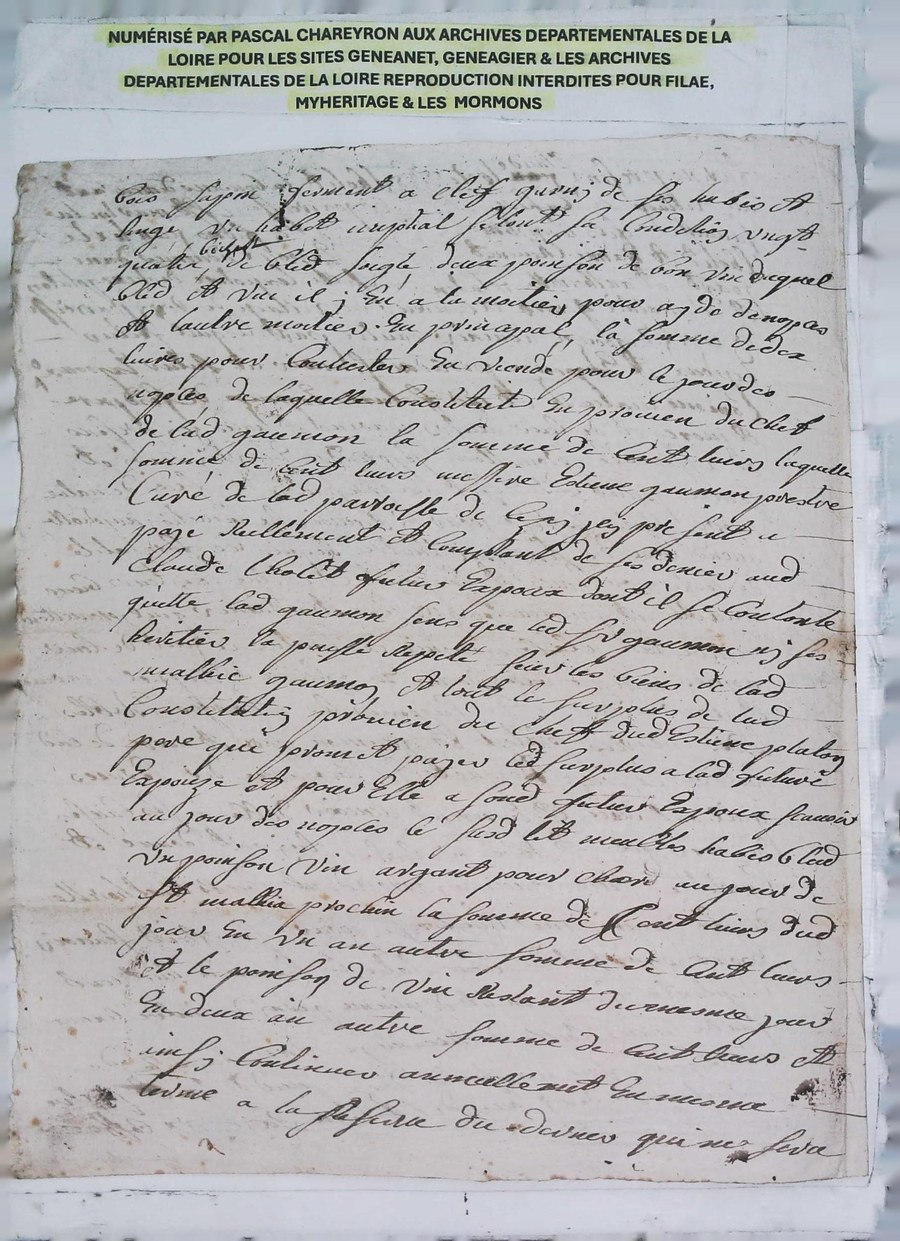 NUMÉRISÉ PAR PASCAL CHAREYRON AUX ARCHIVES DEPARTEMENTALES DE LA
LOIRE POUR LES SITES GENEANET, GENEAGIER & LES ARCHIVES
DEPARTEMENTALES DE LA LOIRE REPRODUCTION INTERDITES POUR FILAE,
MYHERITAGE & LES MORMONS
bois sapin fermant a clef garnj de ses habis et
linge un habit nuptial selont sa condition vingt
bichest
quatre de bled seigle deux poinson de bon vin duquel
bled et vin il j en a la moitier pour ayde de nopces
et lautre moitier en principal, la somme de dix
livres pour en viende pour le jour des
nopces de laquelle constitution en provien du chef
de lad gaumon la somme de cent livres laquelle
somme de cent livres messire Estiene gaumon prestre
Curé de lad parroisse de present a
payé reellement et comptant de ses denier aud
Claude Cholet futur Expoux dont il se contente
quitte lad gaumon sens que led sr gaumon nj ses
heritier la puisse repeté sur les biens de lad
mathie gaumon et tout le surplus de lad
Constitution provien du chef dud Estiene platon
pere qui promet payer led surplus a lad future
Expouze et pour Elle a sond futur Expoux scavoir
au jour des nopces le susd lit meubles habis bled
un poinson vin argant pour chere au jour de
st mathia prochin la somme de Cent livres dud
jour en un an autre somme de cent livres
et le poinson de vin restant du mesme jour
En deux an autre somme de cent livres et
insj continuer annuellement En mesme
terme a la du dernier qui ne sera